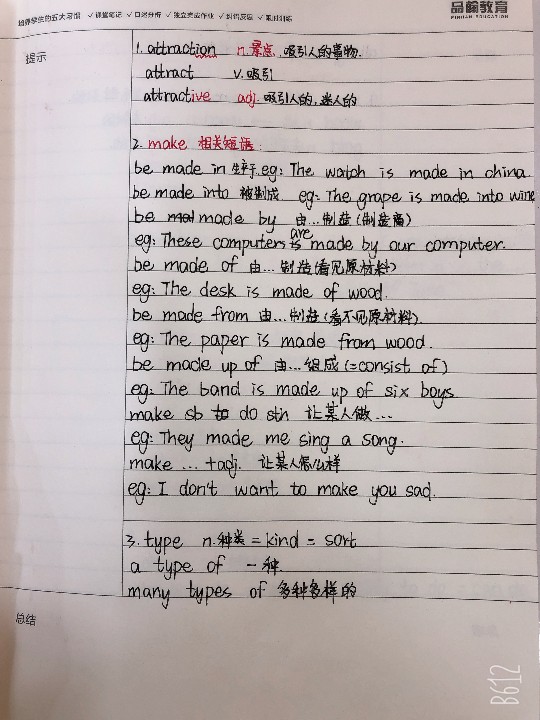 培养学生的五大习惯 ✓课堂笔记 ✓口述分析 ✓独立完成作业 ✓纠错反思 ✓限时训练
品翰教育
PINHAN EDUCATION
提示
1. attraction n.景点.吸引人的事物.
attract v.吸引
attractive adj.吸引人的,迷人的
2. make 相关短语:
be made in 生产于 eg: The watch is made in china.
be made into 被制成 eg: The grape is made into wine
be made by 由...制造(制造商)
are
eg: These computers is made by our computer.
be made of 由...制造(看见原材料)
eg: The desk is made of wood.
be made from 由...制造(看不见原材料).
eg: The paper is made from wood.
be made up of 由...组成(=consist of)
eg: The band is made up of six boys
make sb to do sth 让某人做...
eg: They made me sing a song.
make ... +adj. 让某人怎么样
eg: I don't want to make you sad.
3. type n.种类 = kind = sort
a type of 一种.
many types of 多种多样的
总结
B612